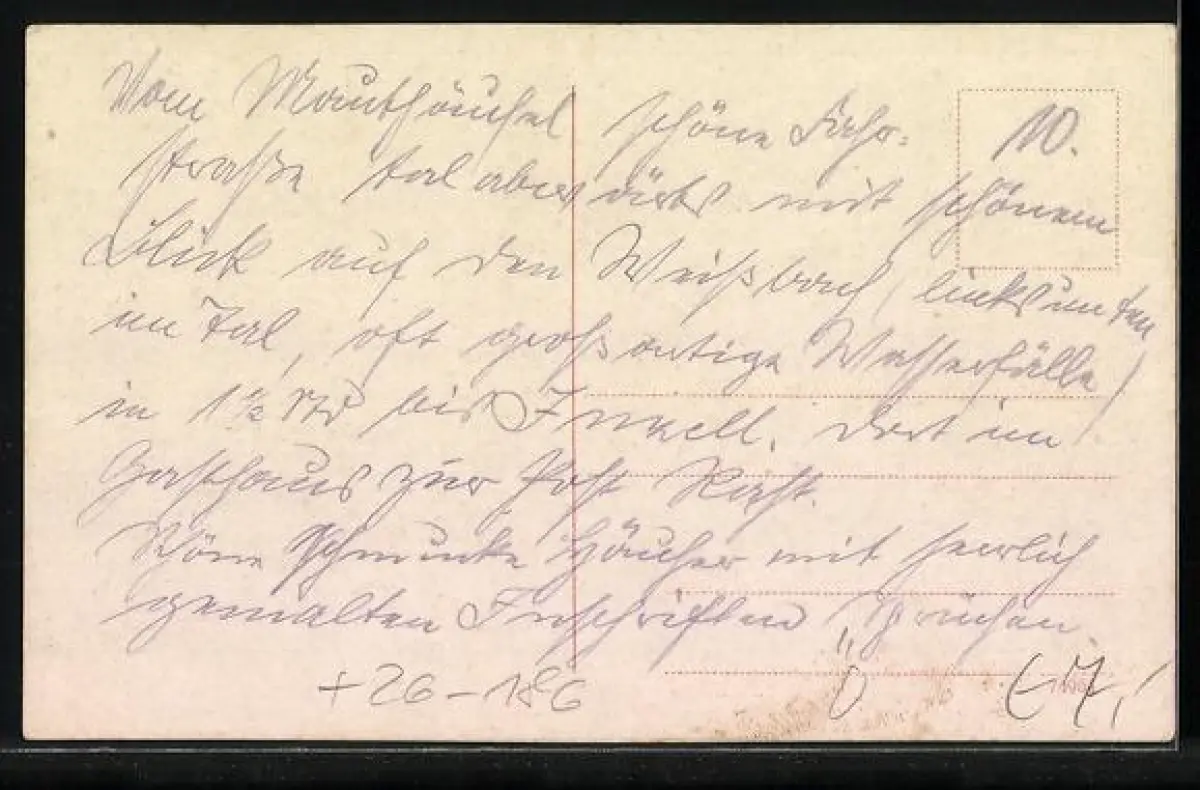 Vom Mauthäusel schöne Fahr-
10.
straße talabwärts mit schönem
Blick auf den Weißbach (links unten
im Tal, oft großartige Wasserfälle)
in 1½ Std bis Inzell. Dort im
Gasthaus zur Post Rast.
Schöne schmucke Häuser mit herrlich
gemalten Inschriften Sprüchen.
+26-186